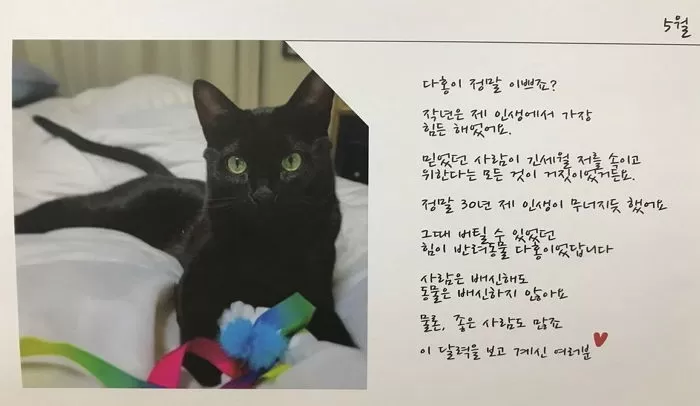 5월
다홍이 정말 이쁘죠?
작년은 제 인생에서 가장
힘든 해었어요.
믿었던 사람이 긴세월 저를 속이고
위한다는 모든 것이 거짓이었거든요.
정말 30년 제 인생이 무너지듯 했어요
그때 버틸 수 있었던
힘이 반려동물 다홍이었답니다
사람은 배신해도
동물은 배신하지 않아요
물론, 좋은 사람도 많죠
이 달력을 보고 계신 여러분